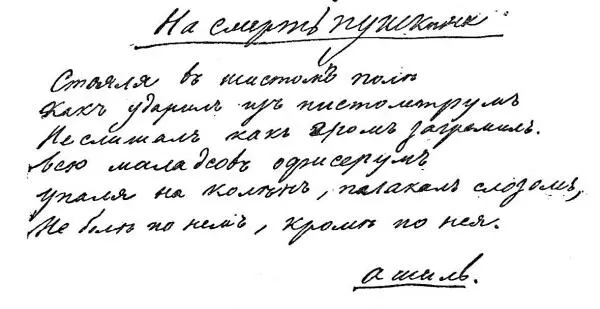 На смерть пушкина
Стояля въ чистомъ поли
Какъ ударилъ изъ пистолетрумъ
Не слишалъ какъ громъ загремилъ.
Всю маладсовъ офисерумъ
упаля на колинъ, палакалъ слозомъ,
Не боли по немъ, кроми по нея.
ашилъ.